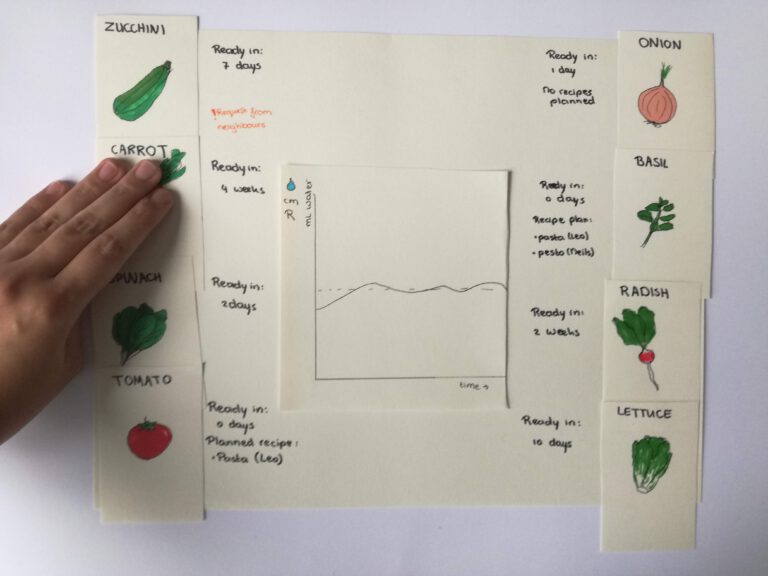 ZUCCHINI
Ready in:
7 days
!Request from
neighbours
CARROT
Ready in:
4 weeks
SPINACH
Ready in:
2 days
TOMATO
Ready in:
0 days
Planned recipe:
• Pasta (Leo)
cm
ml water
time →
ONION
Ready in:
1 day
no recipes
planned
BASIL
Ready in:
0 days
Recipe plan:
• pasta (Leo)
• pesto (Neils)
RADISH
Ready in:
2 weeks
LETTUCE
Ready in:
10 days